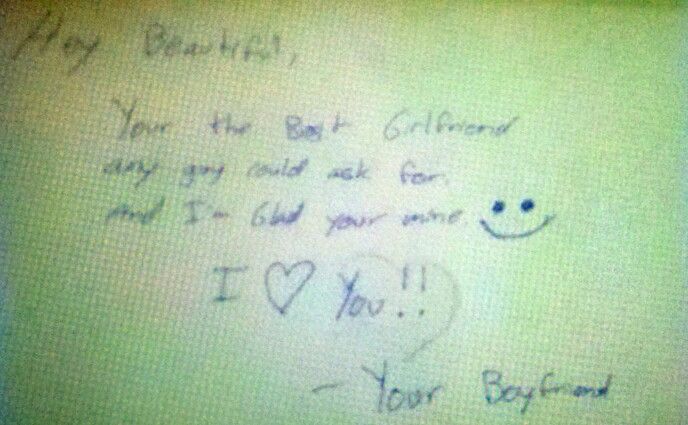 Hey Beautiful,
Your the Best Girlfriend
any guy could ask for.
And I'm Glad your mine.
I ♡ You!!
- Your Boyfriend